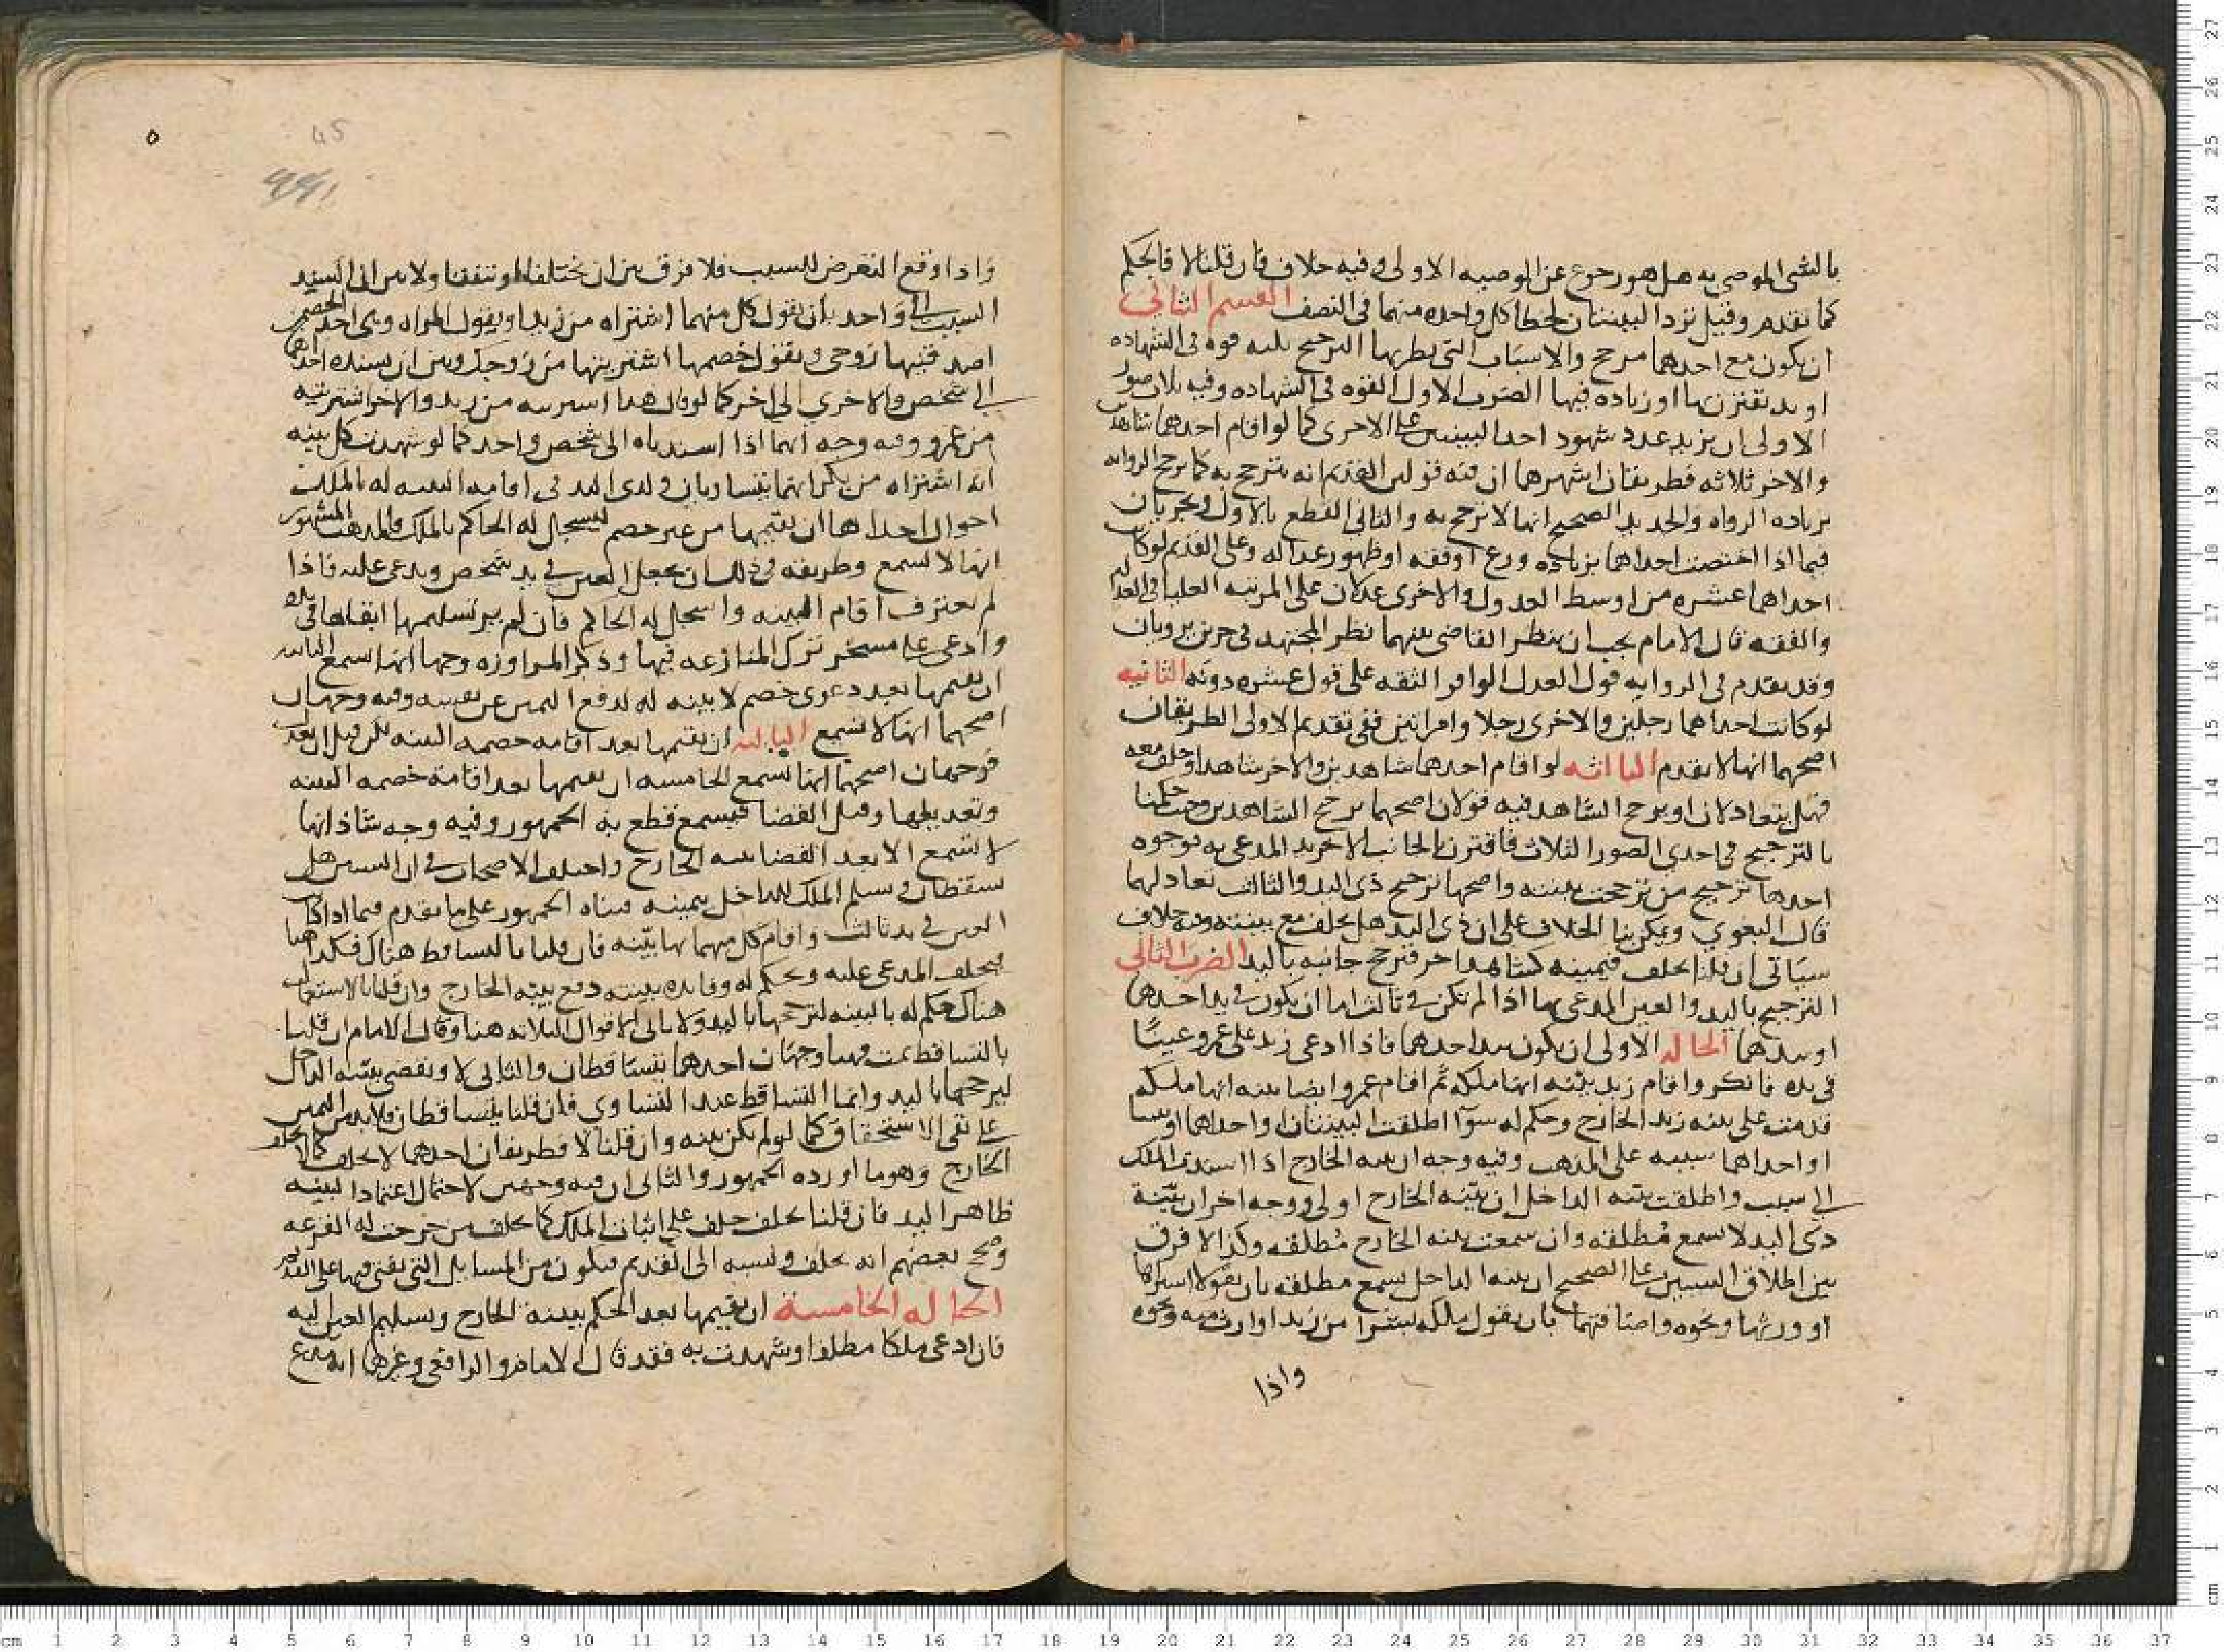 بالشى الموصى به هل هو رجوع عن الوصيه الاولى وفيه خلاف فان قلنا لا فالحكم
كما تقدم وقيل ترد البينتان لخطا كل واحده منهما فى النصف القسم الثانى
ان يكون مع احدهما مرجح والاسباب التى بطريها الترجيح ثلثه قوه فى الشهاده
او يد تقترن بها او زياده فيها الضرب الاول القوه فى الشهاده وفيه ثلاث صور
الاولى ان يزيد عدد شهود احدا البينتين على الاخرى كما لو اقام احدهما شاهدين
والاخر ثلاثه فطريقان اشهرهما ان فيه قولين القديم انه يترجح به كما ترجح الروايه
بزياده الرواه والجديد الصحيح انها لا ترجح به والثانى القطع بالاول ويجريان
فيما اذا اختصت احداهما بزياده ورع او فقه او ظهور عداله وعلى القديم لو كان
احداهما عشره من اوسط العدول والاخرى عدلان على المرتبه العليا فى العداله
والفقه قال الامام يجب ان ينظر القاضى بينهما نظر المجتهد فى خبرين يرويان
وقد يقدم فى الروايه قول العدل الوافر الثقه على قول عشره دونه الثانيه
لو كانت احداهما رجلين والاخرى رجلا وامراتين ففى تقديم الاولى الطريقان
اصحهما انها لا تقدم الثالثه لو اقام احدهما شاهدين والاخر شاهدا وحلف معه
فهل يتعادلان او يرجح الشاهد فيه قولان اصحهما يرجح الشاهدين وحيث حكمنا
بالترجيح فى احدى الصور الثلاث فاقترن بالجانب الاخر يد المدعى به فوجوه
احدها ترجيح من ترجحت بينته واصحها ترجيح ذى اليد والثالث تعادلهما
قال البغوي ويمكن بنا الخلاف على ان ذى اليد هل يحلف مع بينته وفيه خلاف
سياتى ان قلنا يحلف فيمينه كشاهد اخر فترجح جانبه باليد الضرب الثانى
الترجيح باليد والعين المدعى بها اذا لم تكن فى ثالث اما ان يكون فى يد احدهما
او بيدهما الحاله الاولى ان يكون بيد احدهما فاذا ادعى زيد على عمرو عينًا
فى يده فانكر واقام زيد بينه انها ملكه ثم اقام عمرو ايضا بينه انها ملكه
قدمت على بينه زيد الخارج وحكم له سوآ اطلقت البينتان او احداهما او
او احداهما سببه على المذهب وفيه وجه ان بينه الخارج اذا اسندت الملك
الى سبب واطلقت بينه الداخل ان بينه الخارج اولى ووجه اخر ان بينة
ذى اليد لا تسمع مطلقه وان سمعت بينه الخارج مطلقه وكذا لا فرق
بين اطلاق السببين على الصحيح ان بينه الداخل تسمع مطلقه بان يقولا اشتراها
او ورثها ونحوه واضافتهما بان يقول ملكه بشرا من زيد او ارث منه ونحوه
واذا
واذا وقع التعرض للسبب فلا فرق بين ان يختلفا او يتفقا ولا بين ان
السبب الى واحد بان يقول كل منهما اشتراه من زيد او يقول المراه وهى احد الخصمين
اصدقنيها زوجى ويقول خصمها اشتريتها من زوجك وبين ان يسنده احدهما
الى شخص والاخرى الى اخر كما لو قال هذا اشتريته من زيد والاخر اشتريته
من عمرو وفيه وجه انهما اذا اسنداه الى شخص واحد كما لو شهدت كل بينه
انه اشتراه من بكر انهما يتساويان ولذى اليد فى اقامه البينه له بالملك
احوال احداها ان يقيمها من غير خصم ليسجل له الحاكم بالملك والمذهب المشهور
انها لا تسمع وطريقه فى ذلك ان يجعل العين فى يد شخص ويدعى عليه فاذا
لم يعترف اقام البينه واسجل له الحاكم فان لم ير تسليمها ابقاها فى يده
وادعى على مسخر ترك المنازعه فيها وذكر المراوزه وجها انها تسمع الثانيه
ان يقيمها بعد دعوى خصم لا بينه له لدفع اليمين عن نفسه وفيه وجهان
اصحهما انها لا تسمع الثالثه ان يقيمها بعد اقامه خصمه البينه لكن قبل ان تعدل
فوجهان اصحهما انها تسمع الخامسه ان يقيمها بعد اقامة خصمه البينه
وتعديلها وقبل القضا فيسمع قطع به الجمهور وفيه وجه شاذ انها
لا تسمع الا بعد القضا ببينه الخارج واختلف الاصحاب فى ان البينتين هل
سقطان فى تسلم الملك للداخل بيمينه فبناه الجمهور على ما تقدم فيما اذا كان
العين فى يد ثالث واقام كل منهما بها بينه فان قلنا بالتساقط هناك فكذا هنا
فيحلف المدعى عليه ويحكم له وفايده بينته دفع بينه الخارج وان قلنا بالاستعمال
هناك حكم له بالبينه لترجحها باليد ولا ياتى الاقوال الثلاثه هنا وقال الامام ان قلنا
بالتساقط ثمت فهنا وجهان احدهما يتساقطان والثانى لا ويقضى ببينه الداخل
لترجحها باليد وانما التساقط عند التساوى فان قلنا يتساقطان فلا بد من اليمين
على نفى الاستحقاق كما لو لم يكن بينه وان قلنا لا فطريقان احدهما لا يحلف كما لا يحلف
الخارج وهو ما اورده الجمهور والثانى ان فيه وجهين لاحتمال اعتماد البينه
ظاهر اليد فان قلنا يحلف حلف على اثبات الملك كما يحلف من خرجت له القرعه
وصحح بعضهم انه يحلف ونسبه الى القديم فيكون من المسايل التى يفتى فيها على القديم
الحاله الخامسة ان يقيمها بعد الحكم ببينة الخارج وتسليم العين اليه
فان ادعى ملكا مطلقا وشهدت به فقد قال الامام والرافعى وغيرهما انه مدع